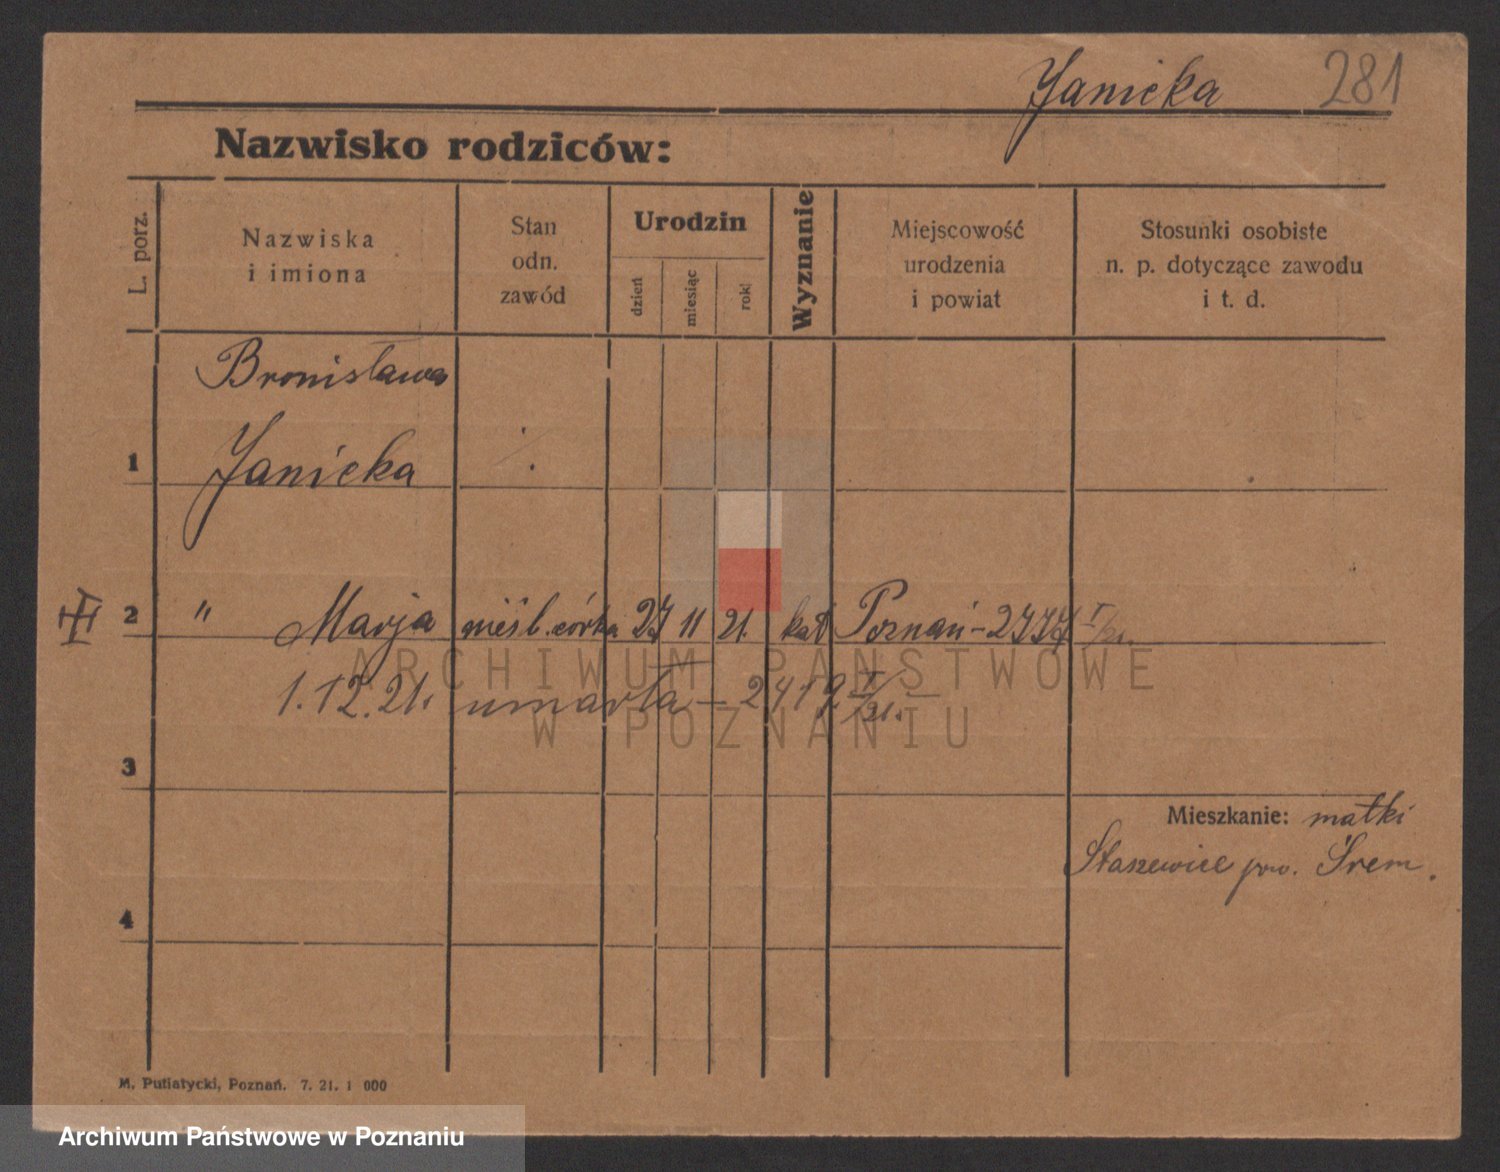 Janicka 281
Nazwisko rodziców:
L. porz.
Nazwiska
i imiona
Stan
odn.
zawód
Urodzin
dzień
miesiąc
rok
Wyznanie
Miejscowość
urodzenia
i powiat
Stosunki osobiste
n. p. dotyczące zawodu
i t. d.
Bronisława
1 Janicka
2 " Marja nieśl. córka 27 11 21. kat Poznań - 2777 I/21.
1.12.21. umarła - 2419 I/21. -
3
Mieszkanie: matki
Staszewice pow. Śrem.
4
M. Putiatycki, Poznań. 7. 21. 1 000
ARCHIWUM PAŃSTWOWE
W POZNANIU
Archiwum Państwowe w Poznaniu